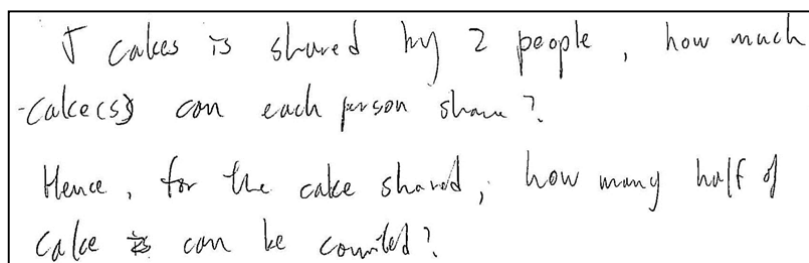 5 cakes is shared by 2 people, how much
cake(s) can each person share?
Hence, for the cake shared, how many half of
cake can be counted?